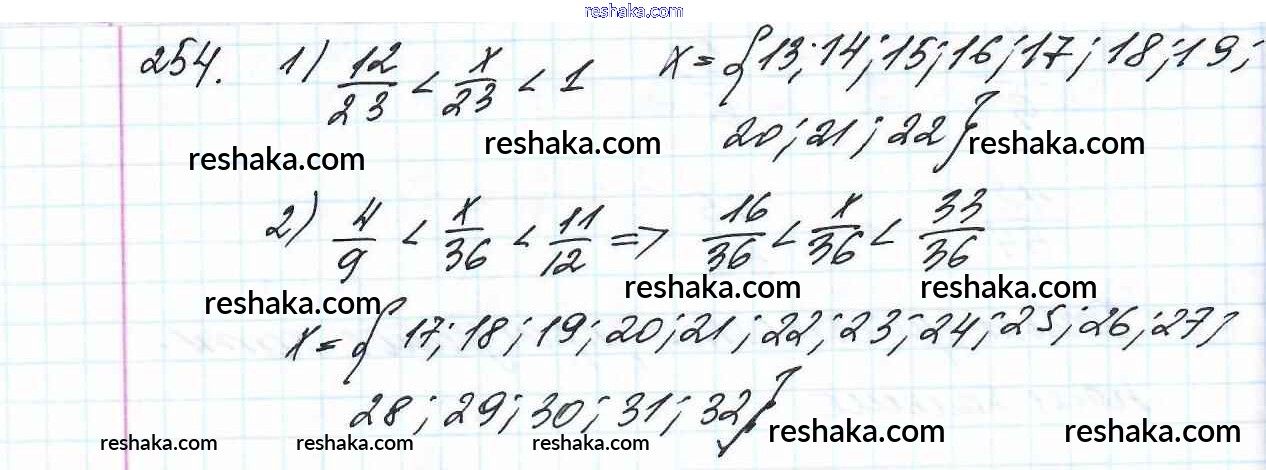 reshaka.com
254. 1) 12/23 < x/23 < 1 x = {13; 14; 15; 16; 17; 18; 19;
20; 21; 22}
reshaka.com reshaka.com reshaka.com
2) 4/9 < x/36 < 11/12 => 16/36 < x/36 < 33/36
reshaka.com reshaka.com reshaka.com
x = {17; 18; 19; 20; 21; 22; 23; 24; 25; 26; 27;
28; 29; 30; 31; 32}
reshaka.com reshaka.com reshaka.com reshaka.com reshaka.com